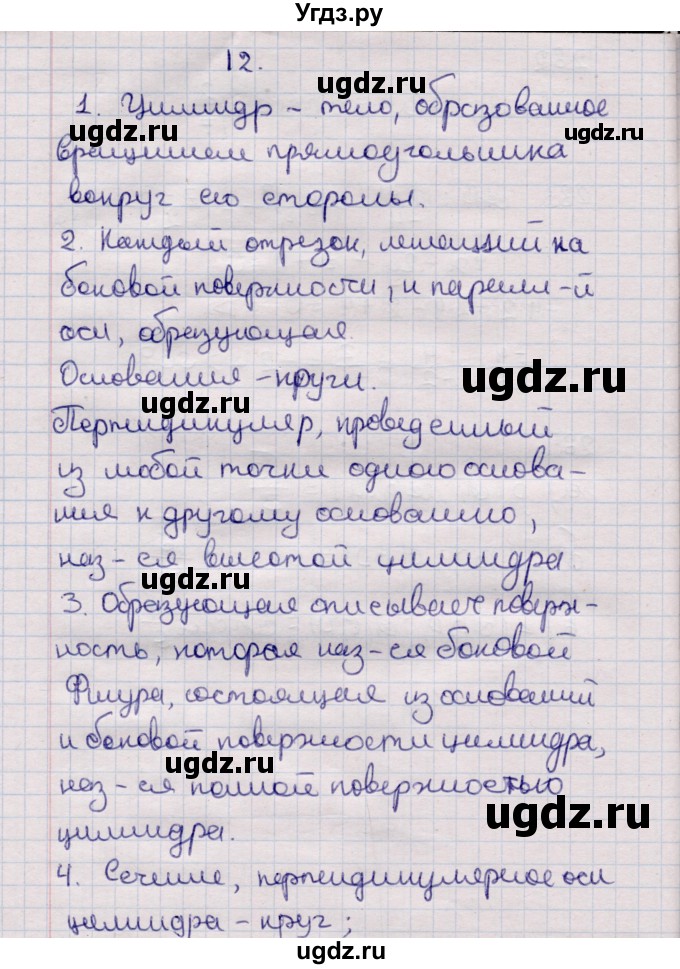 Угдз.ру
12.
ugdz.ru
1. Цилиндр – тело, образованное
ugdz.ru ugdz.ru
вращением прямоугольника
вокруг его стороны.
ugdz.ru
2. Каждый отрезок, лежащий на
боковой поверхности, и паралл-й
оси, образующая.
Основания – круги.
ugdz.ru
ugdz.ru
Перпендикуляр, проведенный
из любой точки одного основа-
ния к другому основанию,
наз-ся высотой цилиндра
ugdz.ru
3. Образующая описывает поверх-
ность, которая наз-ся боковой
Фигура, состоящая из оснований
и боковой поверхности цилиндра,
ugdz.ru
наз-ся полной поверхностью
ugdz.ru
цилиндра.
4. Сечение, перпендикулярное оси
цилиндра – круг;
ugdz.ru